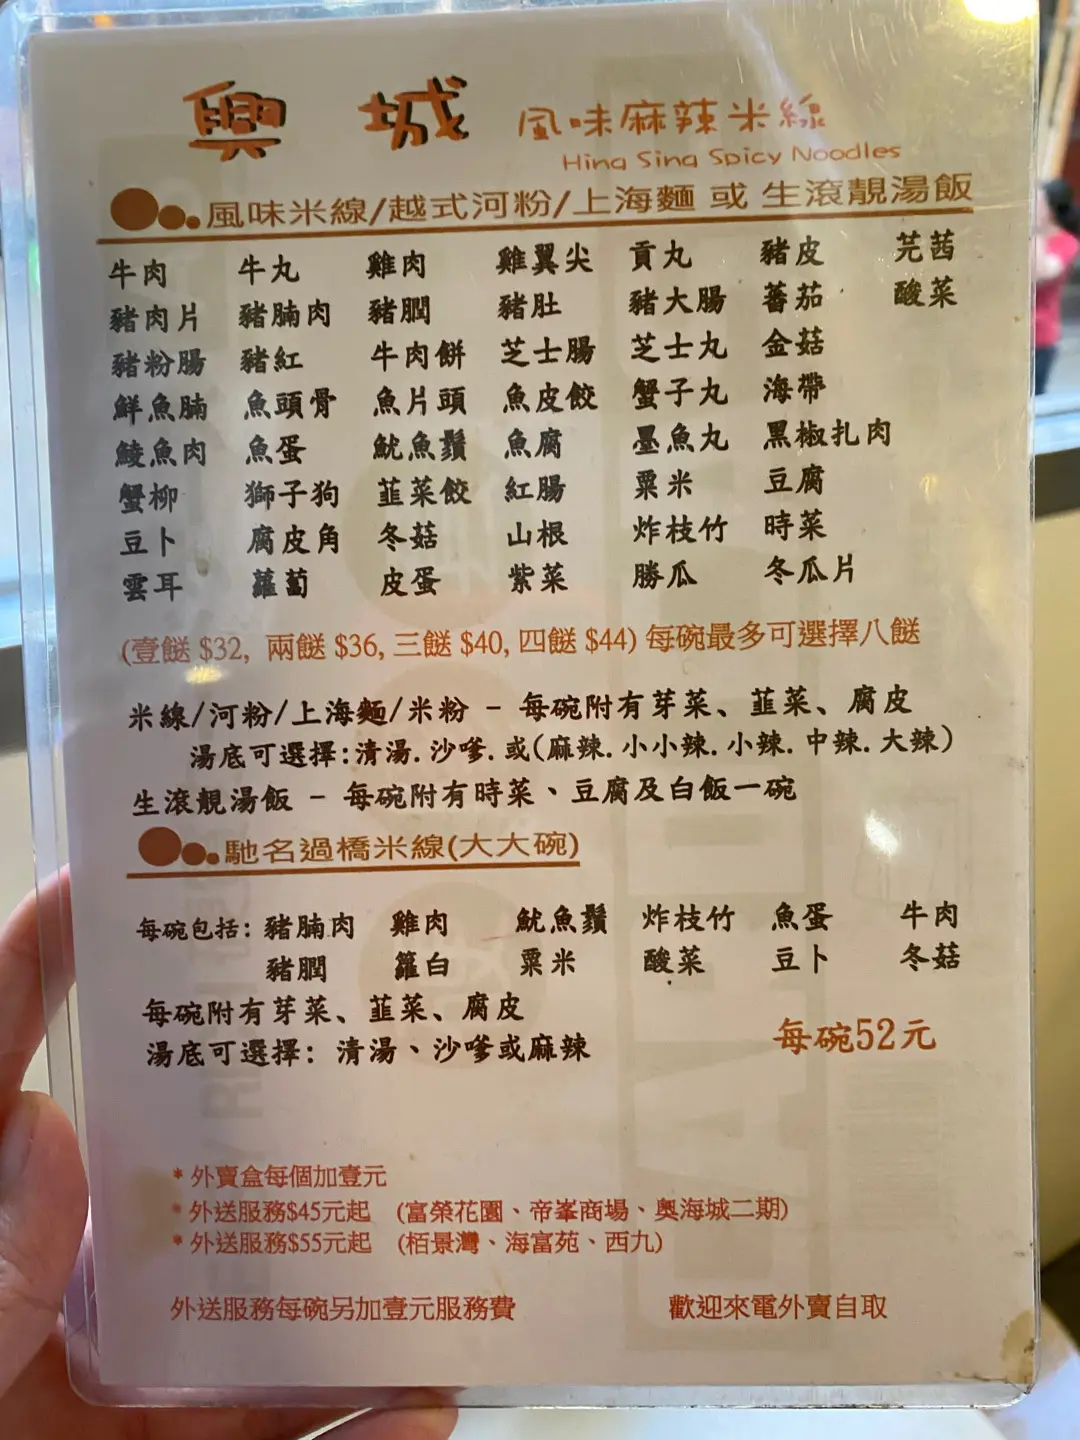 興 城 風味麻辣米線
Hing Sing Spicy Noodles
風味米線/越式河粉/上海麵 或 生滾靚湯飯
牛肉 牛丸 雞肉 雞翼尖 貢丸 豬皮 芫茜
豬肉片 豬腩肉 豬膶 豬肚 豬大腸 蕃茄 酸菜
豬粉腸 豬紅 牛肉餅 芝士腸 芝士丸 金菇
鮮魚腩 魚頭骨 魚片頭 魚皮餃 蟹子丸 海帶
鯪魚肉 魚蛋 魷魚鬚 魚腐 墨魚丸 黑椒扎肉
蟹柳 獅子狗 韮菜餃 紅腸 粟米 豆腐
豆卜 腐皮角 冬菇 山根 炸枝竹 時菜
雲耳 蘿蔔 皮蛋 紫菜 勝瓜 冬瓜片
(壹餸 $32, 兩餸 $36, 三餸 $40, 四餸 $44) 每碗最多可選擇八餸
米線/河粉/上海麵/米粉 - 每碗附有芽菜、韮菜、腐皮
湯底可選擇:清湯.沙嗲.或(麻辣.小小辣.小辣.中辣.大辣)
生滾靚湯飯 - 每碗附有時菜、豆腐及白飯一碗
馳名過橋米線(大大碗)
每碗包括: 豬腩肉 雞肉 魷魚鬚 炸枝竹 魚蛋 牛肉
豬膶 籮白 粟米 酸菜 豆卜 冬菇
每碗附有芽菜、韮菜、腐皮
湯底可選擇: 清湯、沙嗲或麻辣
每碗52元
* 外賣盒每個加壹元
* 外送服務$45元起 (富榮花園、帝峯商場、奧海城二期)
* 外送服務$55元起 (栢景灣、海富苑、西九)
外送服務每碗另加壹元服務費 歡迎來電外賣自取